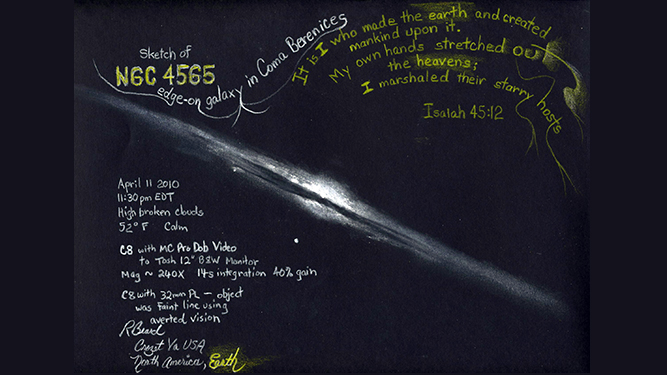 Sketch of
NGC 4565
edge-on galaxy in Coma Berenices
It is I who made the earth and created
mankind upon it.
My own hands stretched out
the heavens;
I marshaled their starry hosts
Isaiah 45:12
April 11 2010
11:30pm EDT
High broken clouds
52° F Calm
C8 with MC Pro Dob Video
to Tosh 12" B&W Monitor
Mag ~ 240X 14s integration 40% gain
C8 with 32mm PL – object
was Faint line using
averted vision
RBeard
Crozet Va USA
North America, Earth